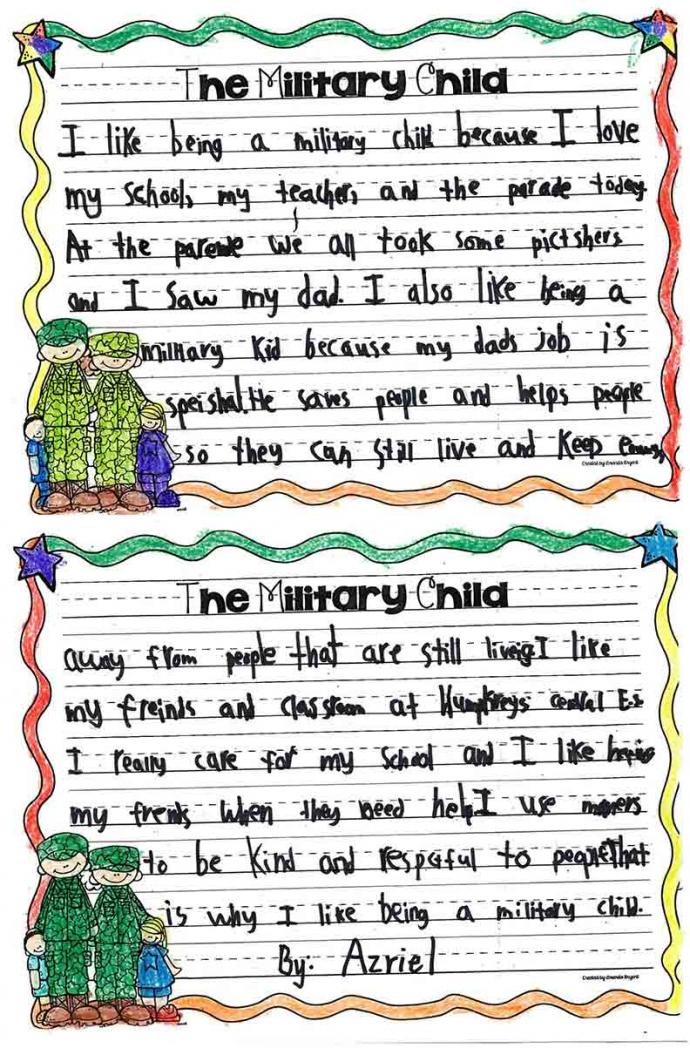 The Military Child
I like being a military child because I love
my school, my teacher, and the parade today.
At the parade we all took some pictshers
and I saw my dad. I also like being a
military kid because my dads job is
speishal. He saves people and helps people
so they can still live and keep
Created by Amanda Bryant
The Military Child
away from people that are still liveig I like
my freinds and classroom at Humphreys central E.S.
I really care for my school and I like
my frends when they need help I use maners
to be kind and respaful to people That
is why I like being a military child.
By: Azriel
Created by Amanda Bryant